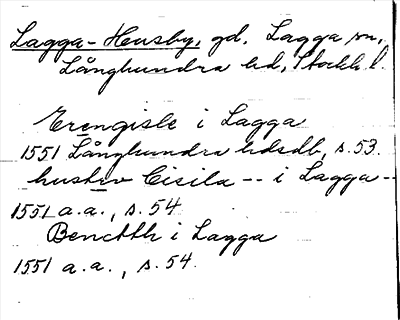 Lagga-Husby, gd, Lagga sn,
Långhundra hd, Stockh. l.
Erengisle i Lagga
1551 Långhundra hdsdb, s. 53.
hustrv Cisila -- i Lagga --
1551 a.a., s. 54
Benctth i Lagga
1551 a.a., s. 54